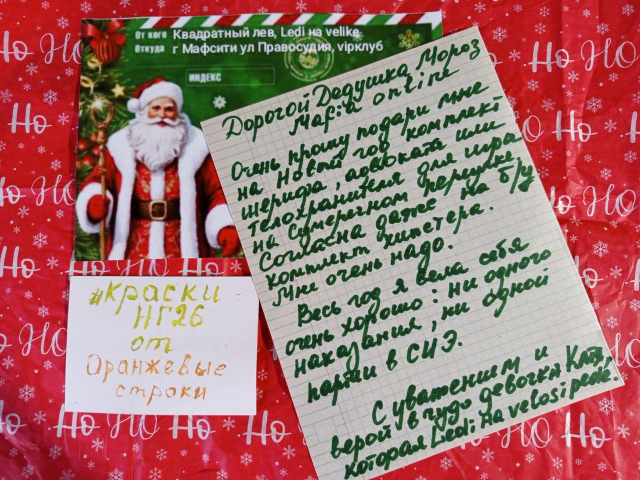 От кого Квадратный лев, Ledi на velike
Откуда г Мафсити ул Правосудия, vipклуб
ИНДЕКС
Дорогой Дедушка Мороз
Mafia online
Очень прошу подари мне
на Новый год комплект
шерифа, адвоката или
телохранителя для игры
на Сумеречном переулке.
Согласна даже на б/у
комплект хипстера.
Мне очень надо.
Весь год я вела себя
очень хорошо: ни одного
наказания, ни одной
партии в СИЭ.
С уважением и
верой в чудо девочка Катя,
которая Ledi на velosipede.
#Краски
НГ26
от
Оранжевые
строки
Ho Ho Ho